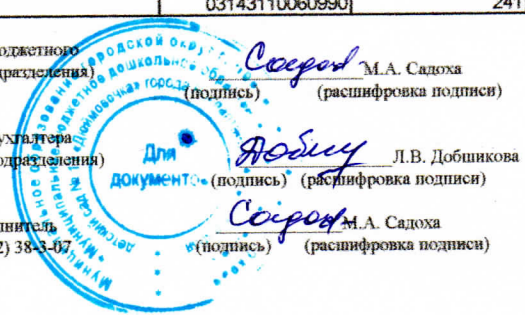 03143110060990 241
юджетного
дразделения) М.А. Садоха
(подпись) (расшифровка подписи)
ухгалтера
одразделения) Л.В. Добшикова
(подпись) (расшифровка подписи)
лнитель М.А. Садоха
2) 38-3-07 (подпись) (расшифровка подписи)
Для
документо
Муниципальное образование городской округ
Муниципальное бюджетное дошкольное
детский сад № 1 «Дюймовочка» город